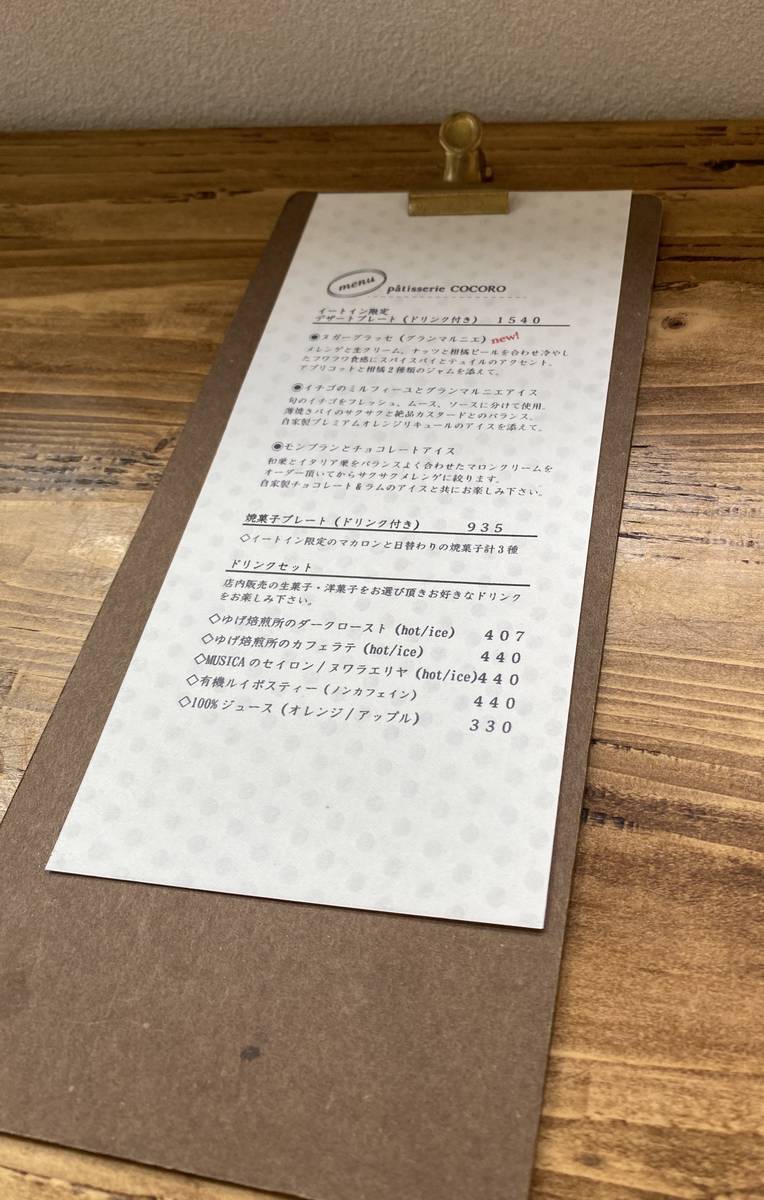 menu pâtisserie COCORO
イートイン限定
デザートプレート (ドリンク付き) 1540
◉ヌガーグラッセ (グランマルニエ) new!
メレンゲと生クリーム、ナッツと柑橘ピールを合わせ冷やし
たフワフワ食感にスパイスパイとテュイルのアクセント。
アプリコットと柑橘2種類のジャムを添えて。
◉イチゴのミルフィーユとグランマルニエアイス
旬のイチゴをフレッシュ、ムース、ソースに分けて使用。
薄焼きパイのサクサクと絶品カスタードとのバランス。
自家製プレミアムオレンジリキュールのアイスを添えて。
◉モンブランとチョコレートアイス
和栗とイタリア栗をバランスよく合わせたマロンクリームを
オーダー頂いてからサクサクメレンゲに絞ります。
自家製チョコレート&ラムのアイスと共にお楽しみ下さい。
焼菓子プレート (ドリンク付き) 935
◇イートイン限定のマカロンと日替わりの焼菓子計3種
ドリンクセット
店内販売の生菓子・洋菓子をお選び頂きお好きなドリンク
をお楽しみ下さい。
◇ゆげ焙煎所のダークロースト (hot/ice) 407
◇ゆげ焙煎所のカフェラテ (hot/ice) 440
◇MUSICAのセイロン/ヌワラエリヤ (hot/ice)440
◇有機ルイボスティー (ノンカフェイン) 440
◇100%ジュース (オレンジ/アップル) 330